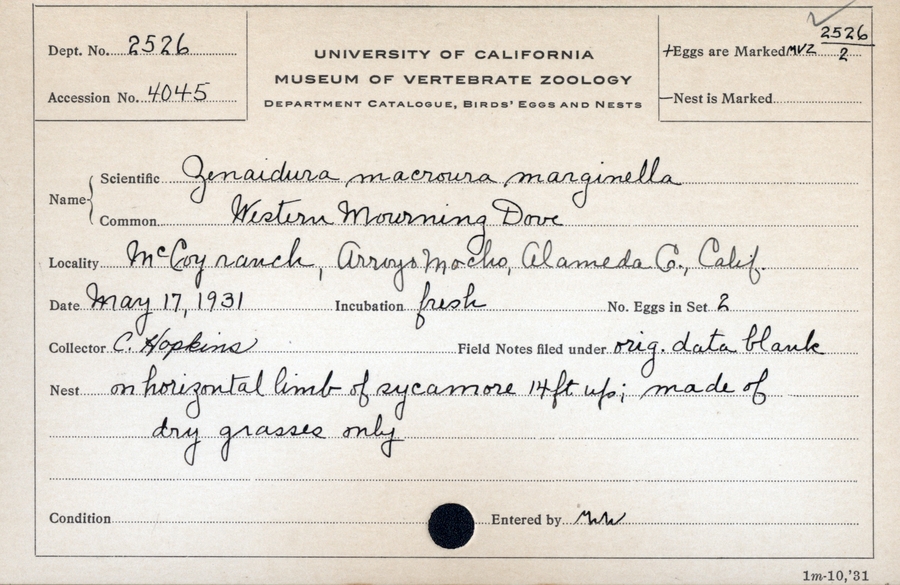 Dept. No. 2526
Accession No. 4045
UNIVERSITY OF CALIFORNIA
MUSEUM OF VERTEBRATE ZOOLOGY
DEPARTMENT CATALOGUE, BIRDS' EGGS AND NESTS
+Eggs are Marked MVZ 2526/2
—Nest is Marked
Name { Scientific Zenaidura macroura marginella
Common Western Mourning Dove
Locality McCoy ranch, Arroyo Mocho, Alameda Co., Calif.
Date May 17, 1931 Incubation fresh No. Eggs in Set 2
Collector C. Hopkins Field Notes filed under orig. data blank
Nest on horizontal limb of sycamore 14 ft up; made of
dry grasses only
Condition Entered by
1m-10,'31